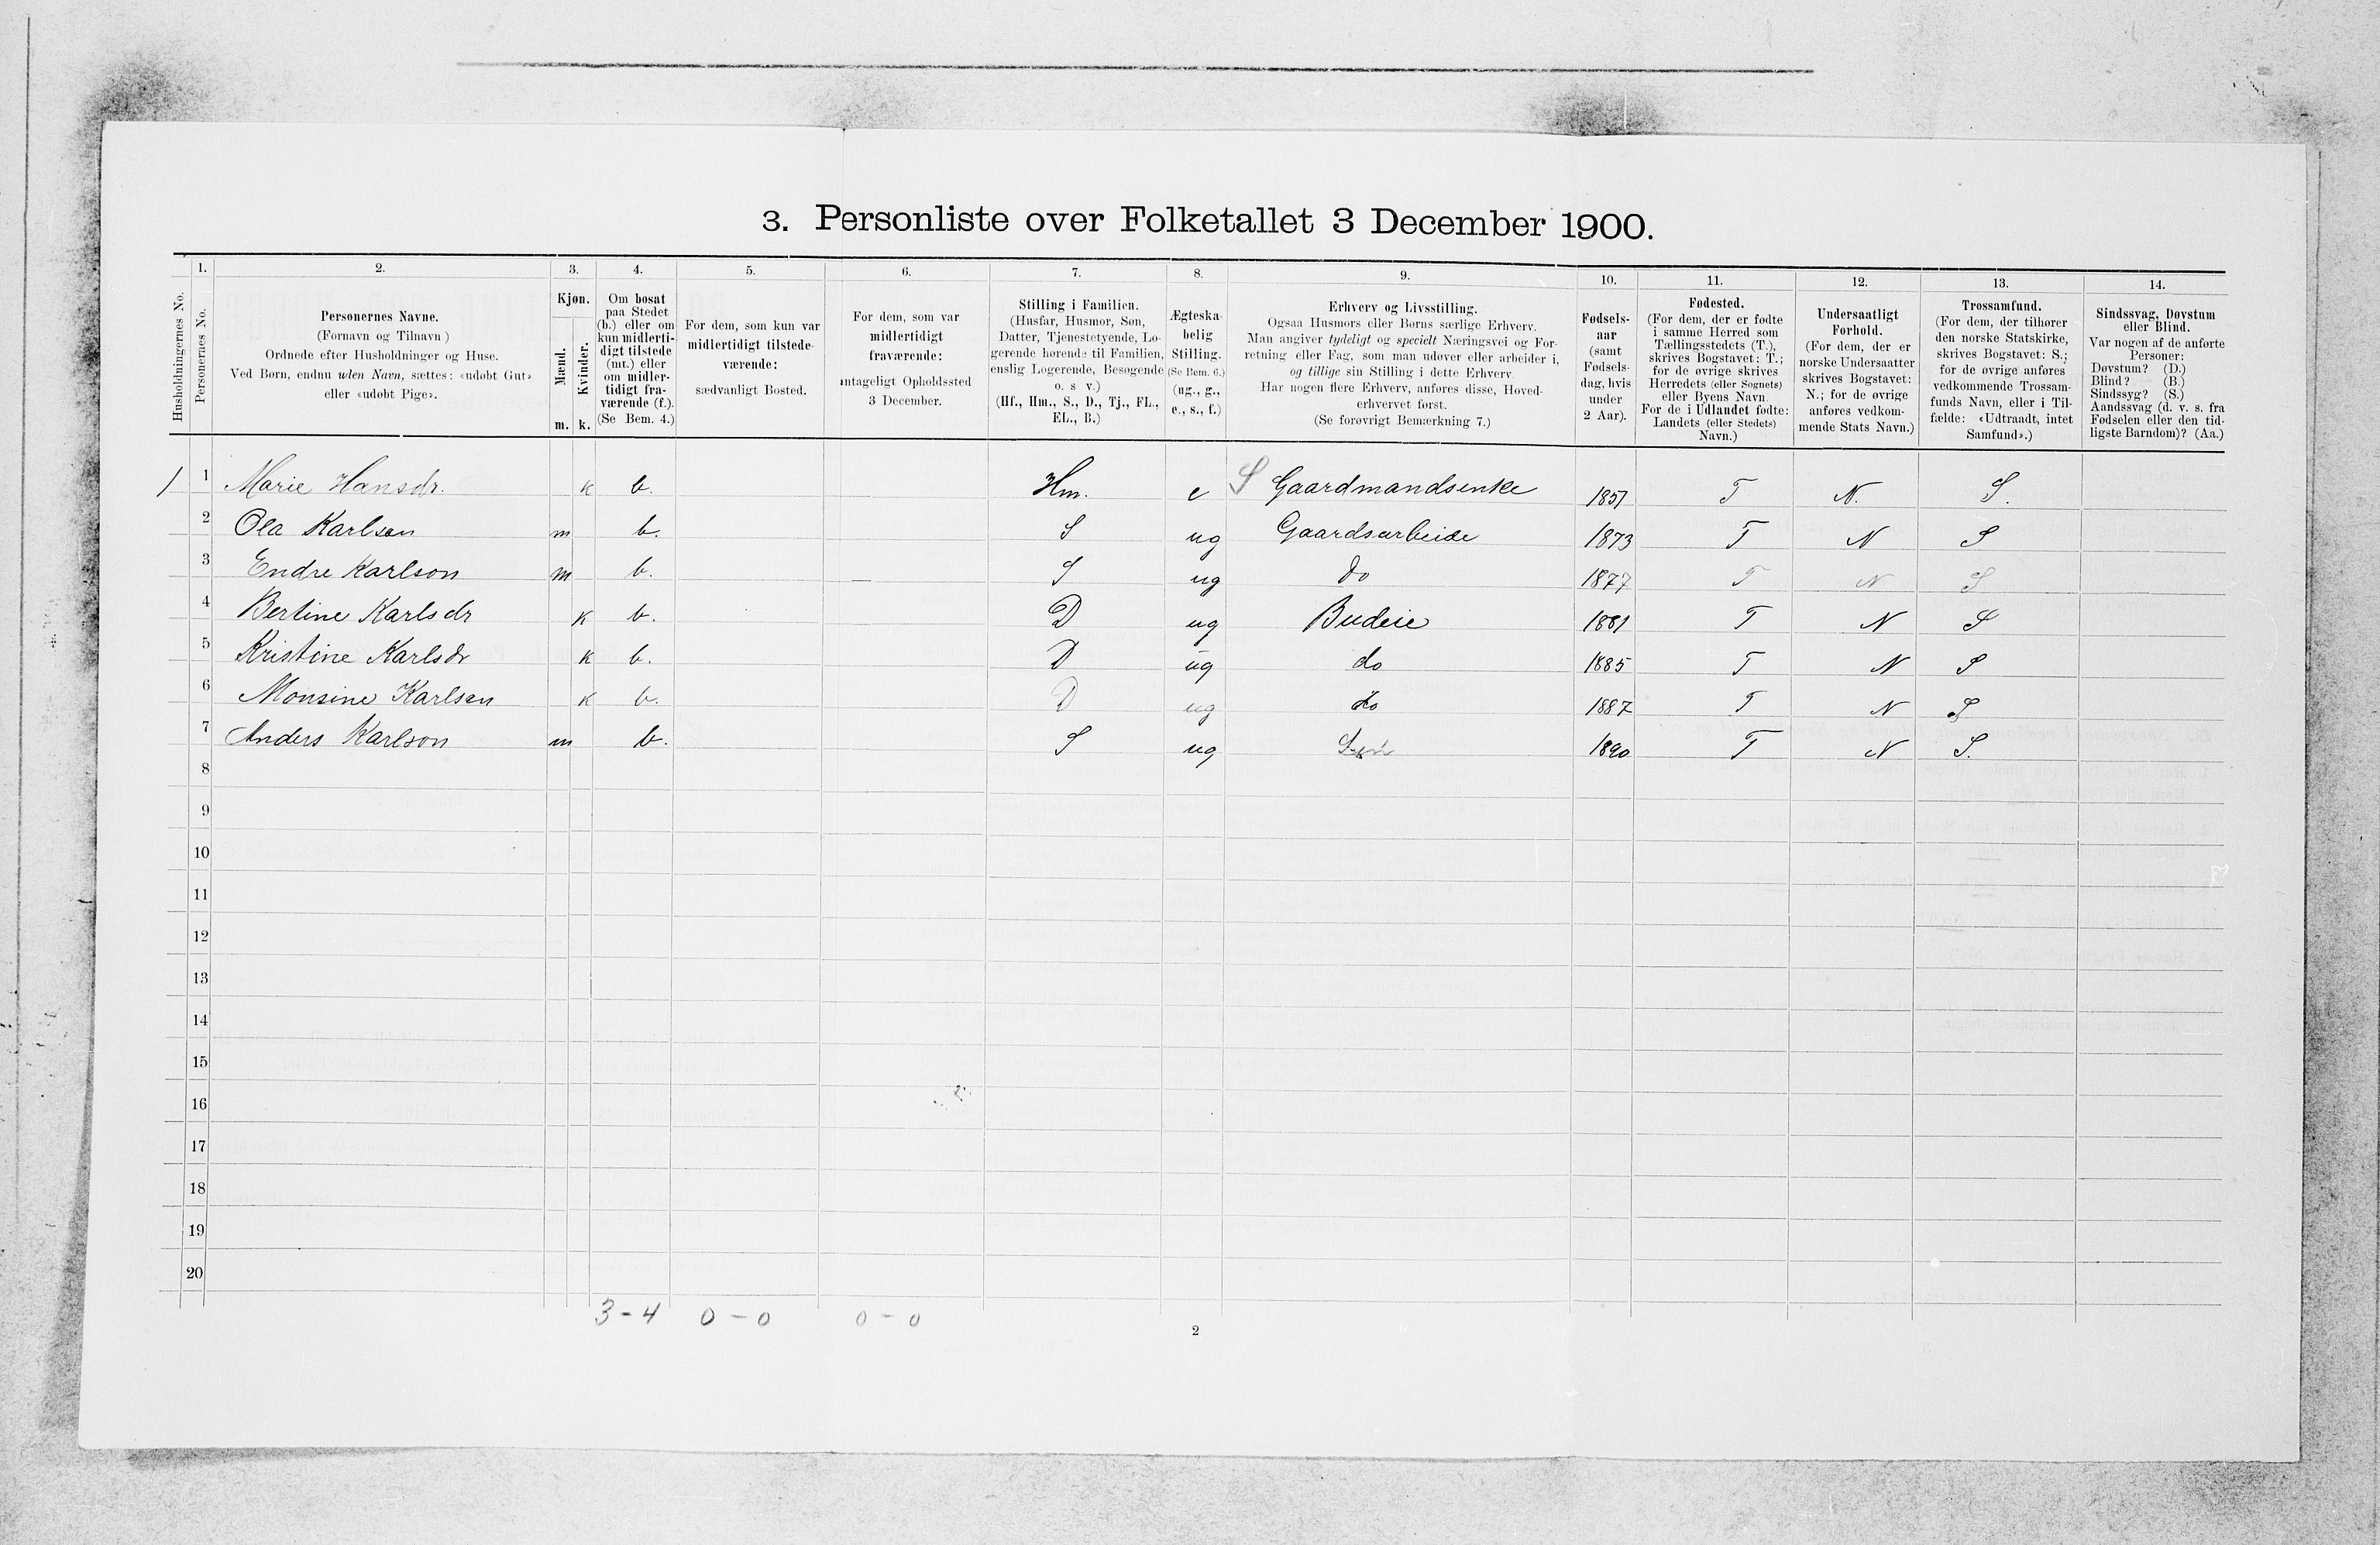 3. Personliste over Folketallet 3 December 1900.
1. 2. 3. 4. 5. 6. 7. 8. 9. 10. 11. 12. 13. 14.
Husholdningernes No.
Personernes No.
Personernes Navne.
(Fornavn og Tilnavn)
Ordnede efter Husholdninger og Huse.
Ved Børn, endnu uden Navn, sættes: «udøbt Gut»
eller «udøbt Pige».
Kjøn.
Mænd.
Kvinder.
m. k.
Om bosat
paa Stedet
(b.) eller om
kun midlerti-
digt tilstede
(mt.) eller
om midler-
tidigt fra-
værende (f.).
(Se Bem. 4.)
For dem, som kun var
midlertidigt tilstede-
værende:
sædvanligt Bosted.
For dem, som var
midlertidigt
fraværende:
antageligt Opholdssted
3 December.
Stilling i Familien.
(Husfar, Husmor, Søn,
Datter, Tjenestetyende, Lo-
gerende hørende til Familien,
enslig Logerende, Besøgende
o. s v.)
(Hf., Hm., S., D., Tj., FL.,
EL., B.)
Ægteska-
belig
Stilling.
(Se Bem. 6.)
(ug., g.,
e., s., f.)
Erhverv og Livsstilling.
Ogsaa Husmors eller Børns særlige Erhverv.
Man angiver tydeligt og specielt Næringsvei og For-
retning eller Fag, som man udøver eller arbeider i,
og tillige sin Stilling i dette Erhverv.
Har nogen flere Erhverv, anføres disse, Hoved-
erhvervet først.
(Se forøvrigt Bemærkning 7.)
Fødsels-
aar
(samt
Fødsels-
dag, hvis
under
2 Aar).
Fødested.
(For dem, der er fødte
i samme Herred som
Tællingsstedets (T.),
skrives Bogstavet: T.;
for de øvrige skrives
Herredets (eller Sognets)
eller Byens Navn.
For de i Udlandet fødte:
Landets (eller Stedets)
Navn.)
Undersaatligt
Forhold.
(For dem, der er
norske Undersaatter
skrives Bogstavet:
N.; for de øvrige
anføres vedkom-
mende Stats Navn.)
Trossamfund.
(For dem, der tilhører
den norske Statskirke,
skrives Bogstavet: S.;
for de øvrige anføres
vedkommende Trossam-
funds Navn, eller i Til-
fælde: «Udtraadt, intet
Samfund».)
Sindssvag, Døvstum
eller Blind.
Var nogen af de anførte
Personer:
Døvstum? (D.)
Blind? (B.)
Sindssyg? (S.)
Aandssvag (d. v. s. fra
Fødselen eller den tid-
ligste Barndom)? (Aa.)
1 1 Marie Hansdr. k b. Hm. e S Gaardmandsenke 1851 T N. S.
2 Ola Karlson m b. S ug Gaardsarbeide 1873 T N S
3 Endre Karlson m b. S ug do 1877 T N S
4 Bertine Karlsdr k b. D ug Budeie 1881 T N S
5 Kristine Karlsdr k b. D ug do 1885 T N S
6 Monsine Karlsen k b. D ug do 1887 T N S
7 Anders Karlson m b. S ug 1890 T N S.
8
9
10
11
12
13
14
15
16
17
18
19
20
3-4 0-0 0-0
2